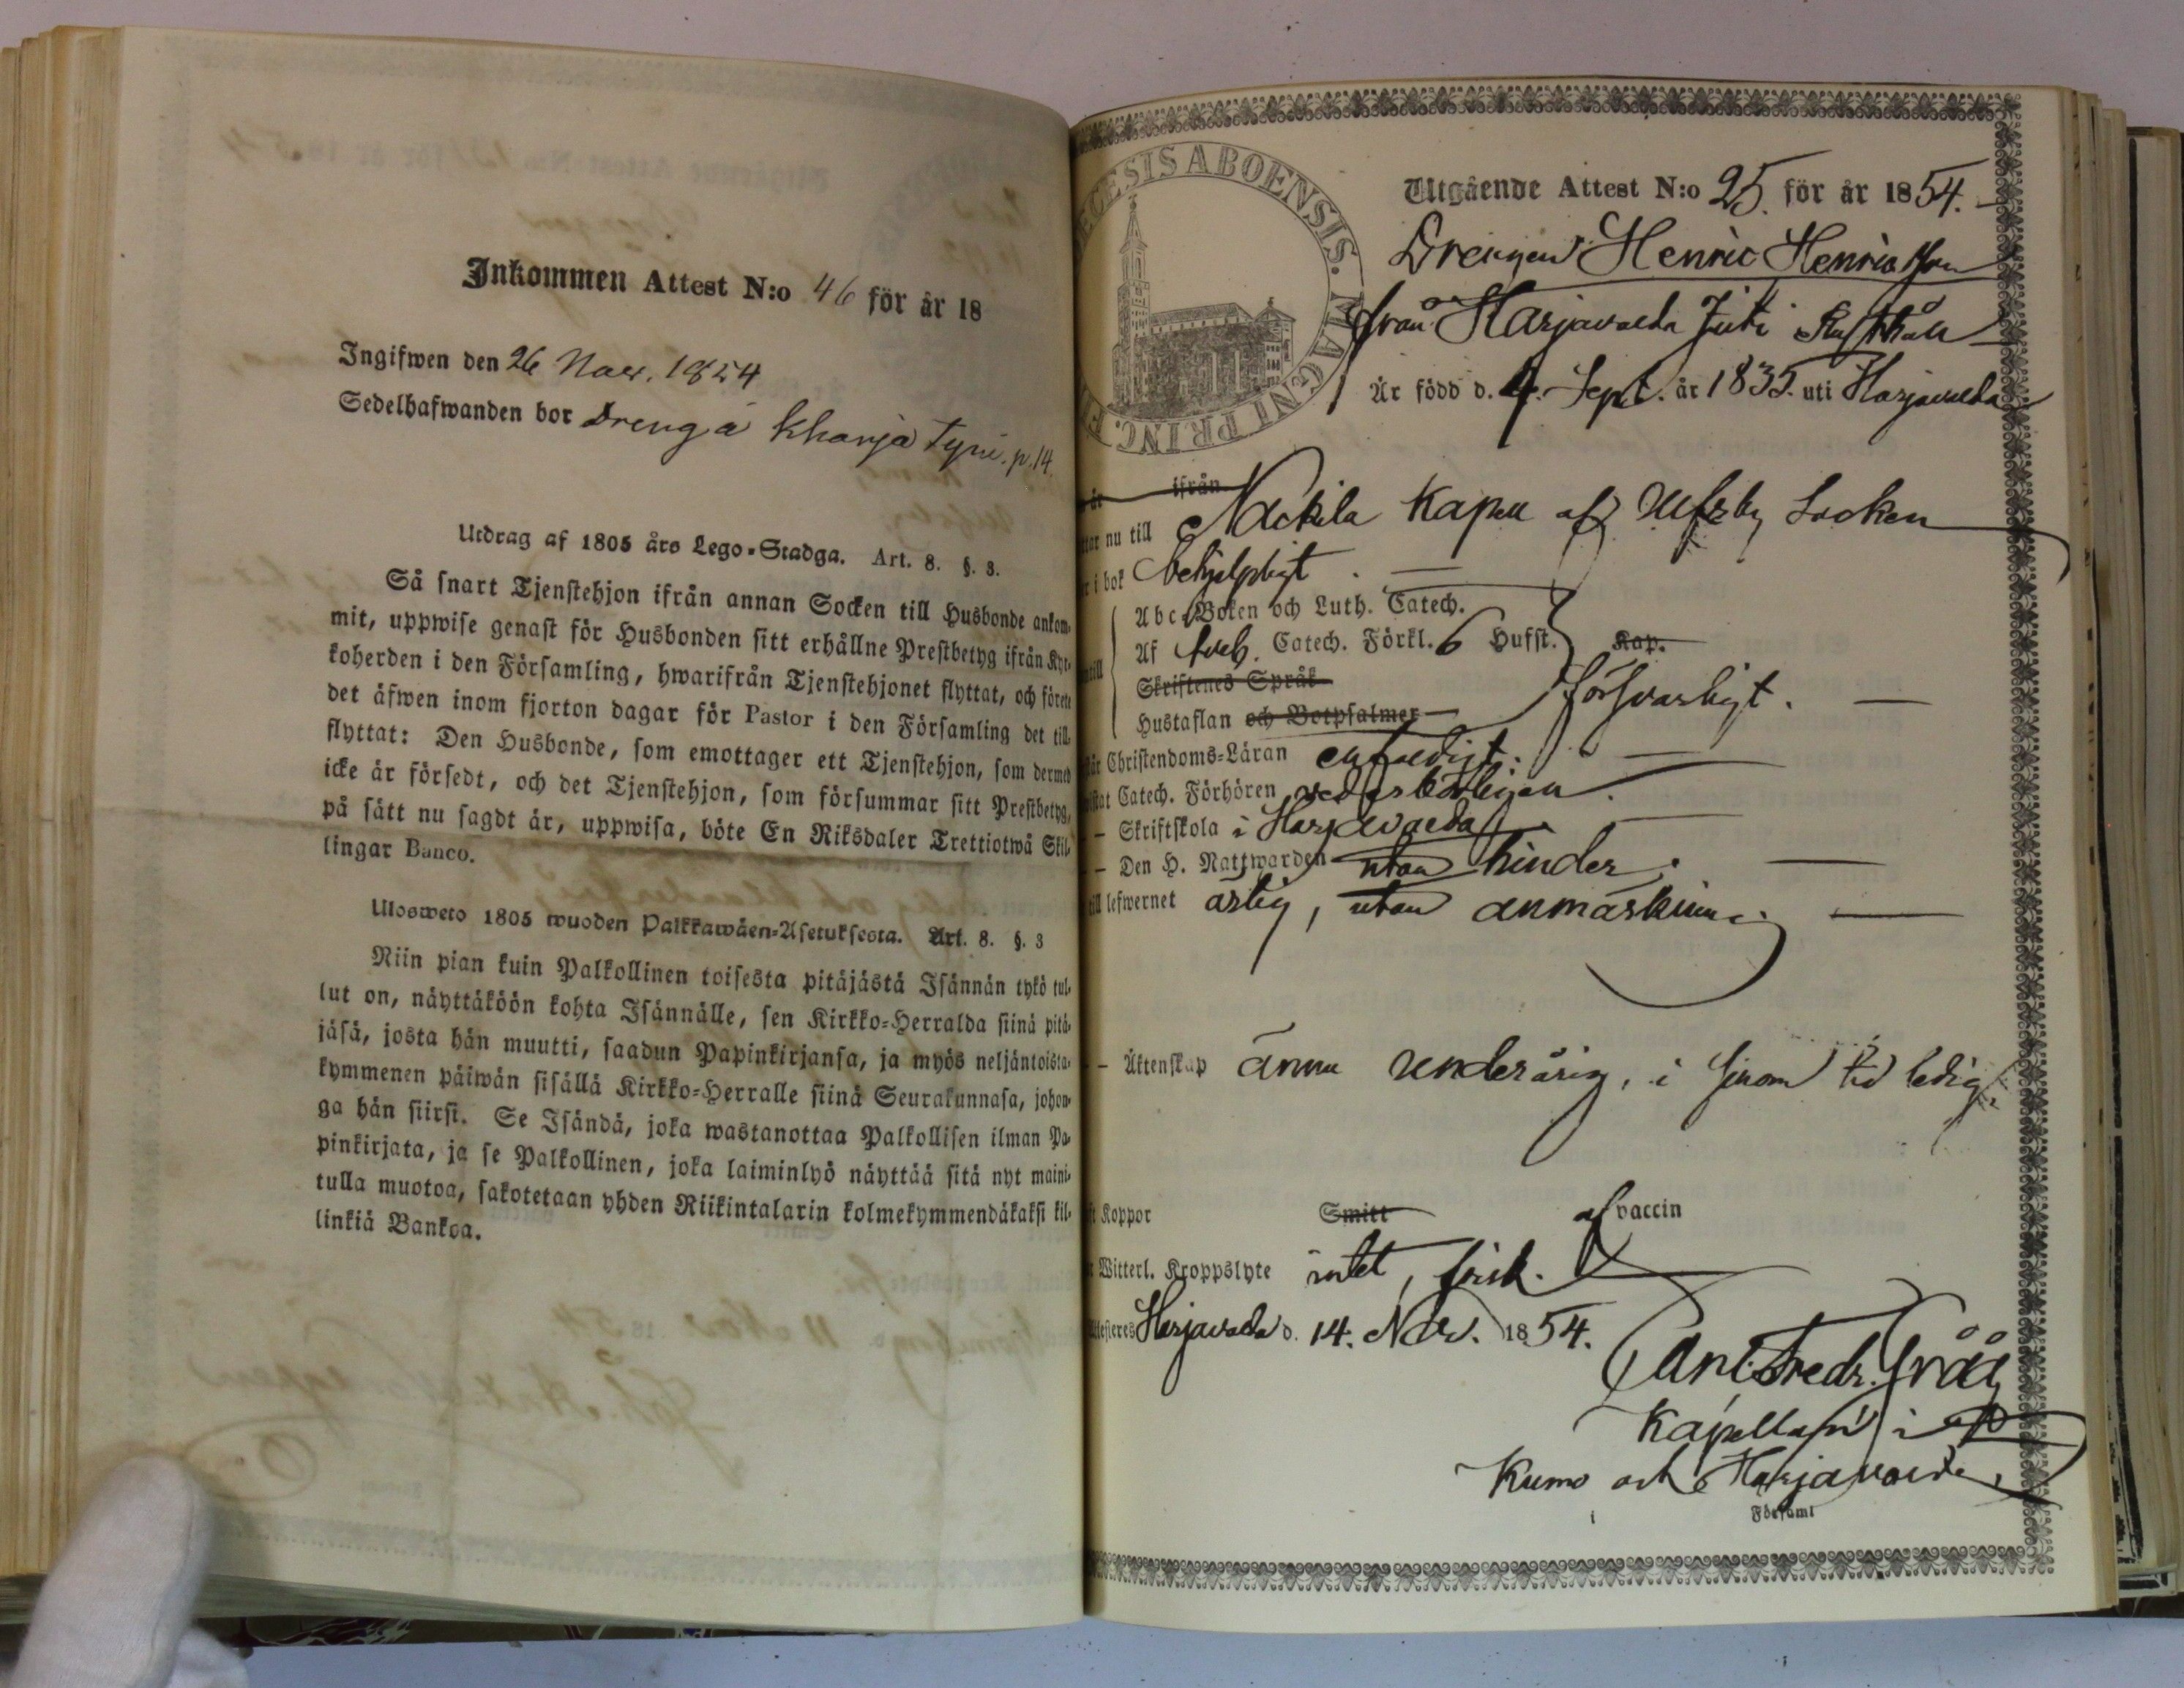 Inkommen Attest N:o 46 för år 18
Ingifwen den 26 Nov. 1854
Sedelhafwanden bor Dreng å Kharja Tyni. p. 14.
Utdrag af 1805 års Lego-Stadga. Art. 8. §. 3.
Så snart Tjenstehjon ifrån annan Socken till Husbonde ankom-
mit, uppwise genast för Husbonden sitt erhållne Prestbetyg ifrån Kyr-
koherden i den Församling, hwarifrån Tjenstehjonet flyttat, och förete
det äfwen inom fjorton dagar för Pastor i den Församling det till-
flyttat: Den Husbonde, som emottager ett Tjenstehjon, som dermed
icke är försedt, och det Tjenstehjon, som försummar sitt Prestbetyg,
på sätt nu sagdt är, uppwisa, böte En Riksdaler Trettiotwå Skil-
lingar Banco.
Ulosweto 1805 wuoden Palkkawäen-Asetuksesta. Art. 8. §. 3
Niin pian kuin Palkollinen toisesta pitäjästä Isännän tykö tul-
lut on, näyttäköön kohta Isännälle, sen Kirkko-Herralda siinä pitä-
jäsä, josta hän muutti, saadun Papinkirjansa, ja myös neljäntoista-
kymmenen päiwän sisällä Kirkko-Herralle siinä Seurakunnasa, johon-
ga hän siirsi. Se Isändä, joka wastanottaa Palkollisen ilman Pa-
pinkirjata, ja se Palkollinen, joka laiminlyö näyttää sitä nyt maini-
tulla muotoa, sakotetaan yhden Riikintalarin kolmekymmendäkaksi kil-
linkiä Bankoa.
DIOECESIS ABOENSIS. MAGNI PRINC. FI
Utgående Attest N:o 25. för år 1854.
Drengen Henric Henricsson
från Harjavalda Juti Rusthåll
Är född d. 4. Sept. år 1835. uti Harjavalda
år ifrån
ttar nu till Nackila Kapell af Ulfsby Socken
r i bok behjelpligt.
Abc-Boken och Luth. Catech.
Af Sveb. Catech. Förkl. 6 Hufst. Kap.
Skriftenes Språk
försvarligt.
Hustaflan och Botpsalmer
Christendoms-Läran enfaldigt.
stat Catech. Förhören vederbörligen.
- Skriftskola i Harjavalda
- Den H. Nattwarden utan hinder.
till lefwernet ärlig, utan anmärkning.
- Äktenskap ännu underårig, i sinom tid ledig.
Koppor Smitt af vaccin
Witterl. Kroppslyte intet, frisk.
Attesteres Harjavalda d. 14. Nov. 1854.
Carl Fredr. Gråå
Kapellan i
Kumo och Harjavalda,
i Församl